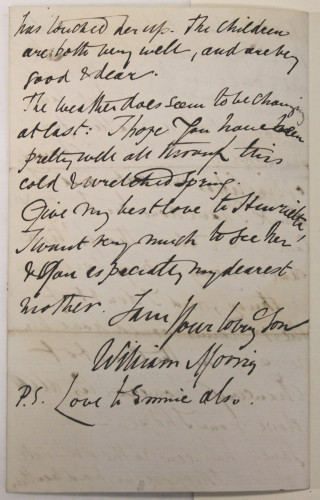 has touched her up. The children
are both very well, and are very
good & dear.
The weather does seem to be changing
at last: I hope you have been
pretty well all through this
cold & wretched spring.
Give my best love to Henrietta,
I want very much to see her
& you especially my dearest
mother.
I am
Your loving Son
William Morris
P.S. Love to Emmie also.